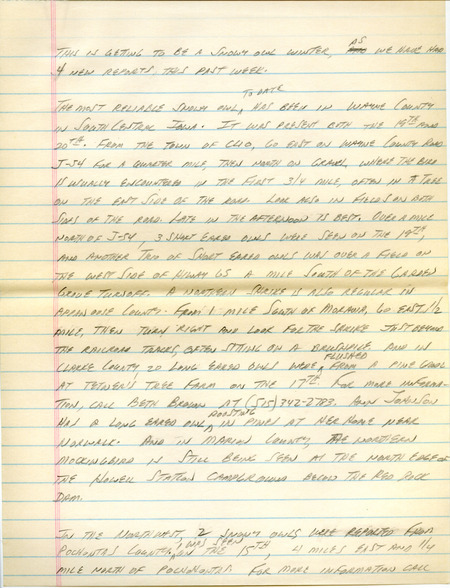 THIS IS GETTING TO BE A SNOWY OWL WINTER, AS WE HAVE HAD
4 NEW REPORTS THIS PAST WEEK.
TO DATE
THE MOST RELIABLE SNOWY OWL, HAS BEEN IN WAYNE COUNTY
IN SOUTH CENTRAL IOWA. IT WAS PRESENT BOTH THE 19TH AND
20TH. FROM THE TOWN OF CLIO, GO EAST ON WAYNE COUNTY ROAD
J-54 FOR A QUARTER MILE, THEN NORTH ON GRAVEL, WHERE THE BIRD
IS USUALLY ENCOUNTERED IN THE FIRST 3/4 MILE, OFTEN IN A TREE
ON THE EAST SIDE OF THE ROAD. LOOK ALSO IN FIELDS ON BOTH
SIDES OF THE ROAD. LATE IN THE AFTERNOON IS BEST. OVER A MILE
NORTH OF J-54, 3 SHORT EARED OWLS WERE SEEN ON THE 19TH,
AND ANOTHER TRIO OF SHORT EARED OWLS WAS OVER A FIELD ON
THE WEST SIDE OF HIWAY 65 A MILE SOUTH OF THE GARDEN
GROVE TURNOFF. A NORTHERN SHRIKE IS ALSO REGULAR IN
APPANOOSE COUNTY. FROM 1 MILE SOUTH OF MORAVIA, GO EAST 1/2
MILE, THEN TURN RIGHT AND LOOK FOR THE SHRIKE JUST BEYOND
THE RAILROAD TRACKS, OFTEN SITTING ON A BRUSHPILE. AND IN
FLUSHED
CLARKE COUNTY, 20 LONG EARED OWLS WERE FROM A PINE GROVE
AT TETWEN'S TREE FARM ON THE 17TH. FOR MORE INFORMA-
TION, CALL BETH BROWN AT (515) 342-2783. ANN JOHNSON
ROOSTING
HAS A LONG EARED OWL IN PINES AT HER HOME NEAR
NORWALK. AND IN MARION COUNTY, THE NORTHERN
MOCKINGBIRD IN STILL BEING SEEN AT THE NORTH EDGE OF
THE HOWELL STATION CAMPGROUND BELOW THE RED ROCK
DAM.
IN THE NORTHWEST, 2 SNOWY OWLS WERE REPORTED FROM
WAS SEEN
POCAHONTAS COUNTY, ON THE 15TH, 4 MILES EAST AND 1/4
MILE NORTH OF POCAHONTAS. FOR MORE INFORMATION CALL